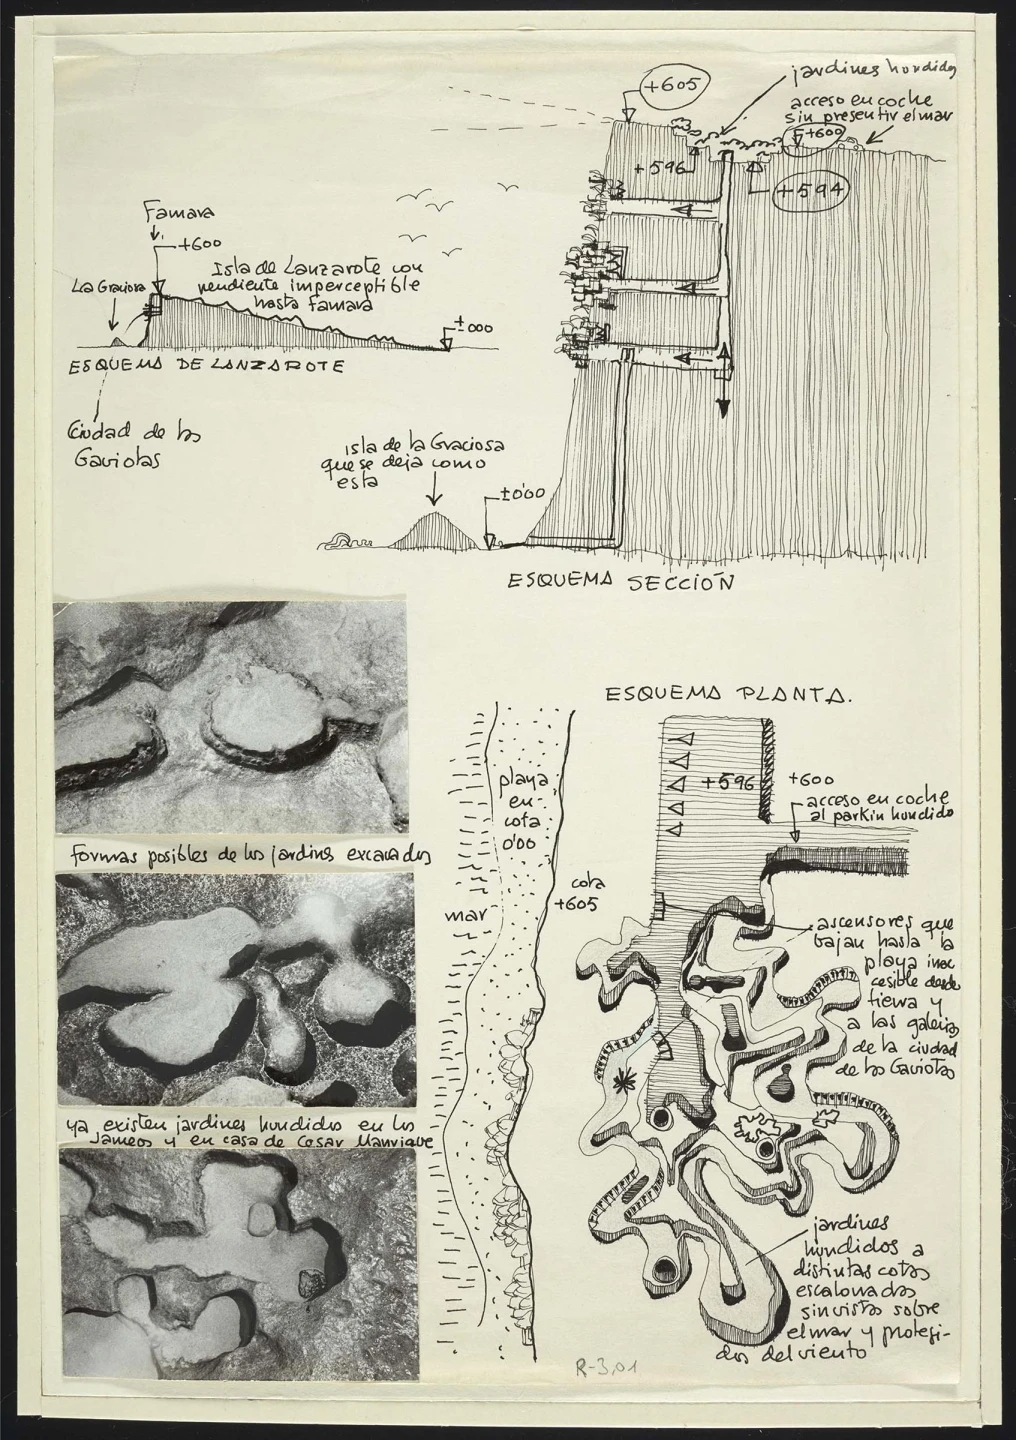 jardines hundidos
+605
acceso en coche
sin presentir el mar
+600
+596
+594
Famara
+600
La Graciosa
Isla de Lanzarote con
pendiente imperceptible
hasta Famara
±000
ESQUEMA DE LANZAROTE
Ciudad de las
Gaviotas
isla de la Graciosa
que se deja como
esta
±0'00
ESQUEMA SECCIÓN
ESQUEMA PLANTA.
playa
en
cota
0'00
mar
cota
+605
+596
+600
acceso en coche
al parkin hundido
formas posibles de los jardines excavados
ascensores que
bajan hasta la
playa inac
cesible desde
tierra y
a las galerias
de la ciudad
de las Gaviotas
ya existen jardines hundidos en los
Jameos y en casa de Cesar Manrique
jardines
hundidos a
distintas cotas
escalonadas
sin vistas sobre
el mar y protegi-
dos del viento
R-3,01